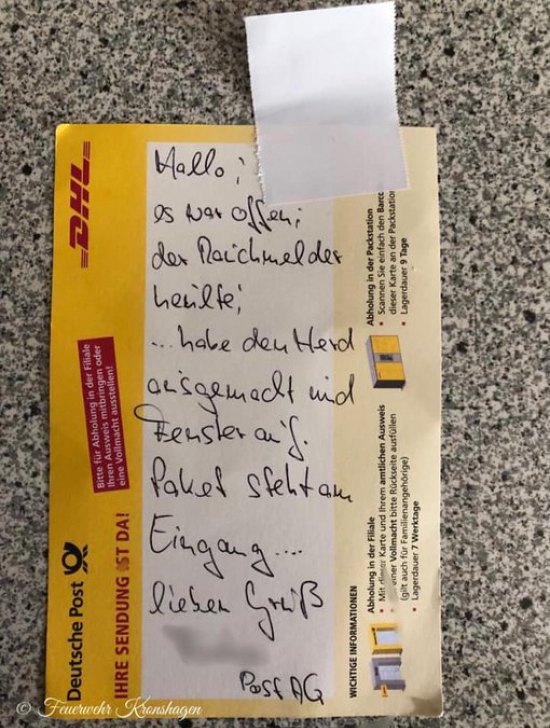 Hallo;
es war offen;
der Rauchmelder
heulte;
...habe den Herd
ausgemacht und
Fenster auf.
Paket steht am
Eingang...
lieben Gruß
Post AG
DHL
Bitte für Abholung in der Filiale
Ihren Ausweis mitbringen oder
eine Vollmacht ausstellen!
Deutsche Post
IHRE SENDUNG IST DA!
WICHTIGE INFORMATIONEN
Abholung in der Filiale
Mit dieser Karte und Ihrem amtlichen Ausweis
einer Vollmacht bitte Rückseite ausfüllen
(gilt auch für Familienangehörige)
Lagerdauer 7 Werktage
Abholung in der Packstation
Scannen Sie einfach den Barc
dieser Karte an der Packstation
Lagerdauer 9 Tage
© Feuerwehr Kronshagen